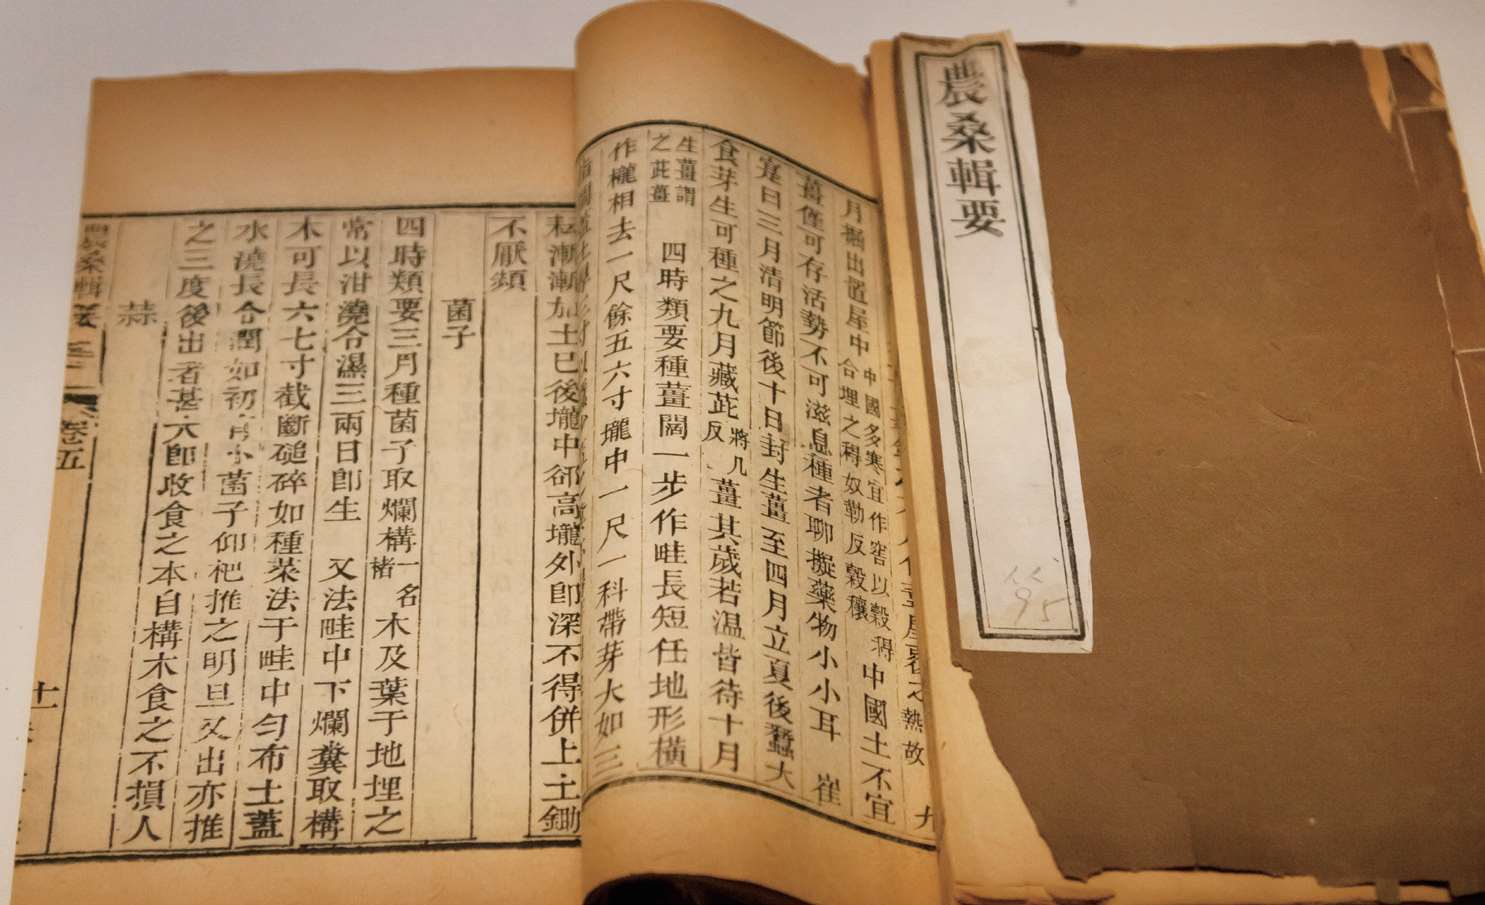 農桑輯要
月掘出置屋中中國多寒宜作窖以穀得合埋之稈奴勒反穀穰中國土不宜
薑僅可存活勢不可滋息種者聊擬藥物小小耳 崔
寔曰三月清明節後十日封生薑至四月立夏後蠶大
食芽生可種之九月藏茈反將几薑其歲若温皆待十月
生薑謂之茈薑 四時類要種薑闊一步作畦長短任地形橫
作壠相去一尺餘五六寸壠中一尺一科帶芽大如三
耘漸漸加土已後壠中郤高壠外即深不得併上土鋤
不厭頻
菌子
四時類要三月種菌子取爛構一名楮木及葉于地埋之
常以泔澆令濕三兩日即生 又法畦中下爛糞取構
木可長六七寸截斷磓碎如種菜法于畦中匀布土蓋
水澆長令潤如初有小菌子仰杷推之明旦又出亦推
之三度後出者甚大即收食之本自構木食之不損人
蒜
農桑輯要
卷五
十一